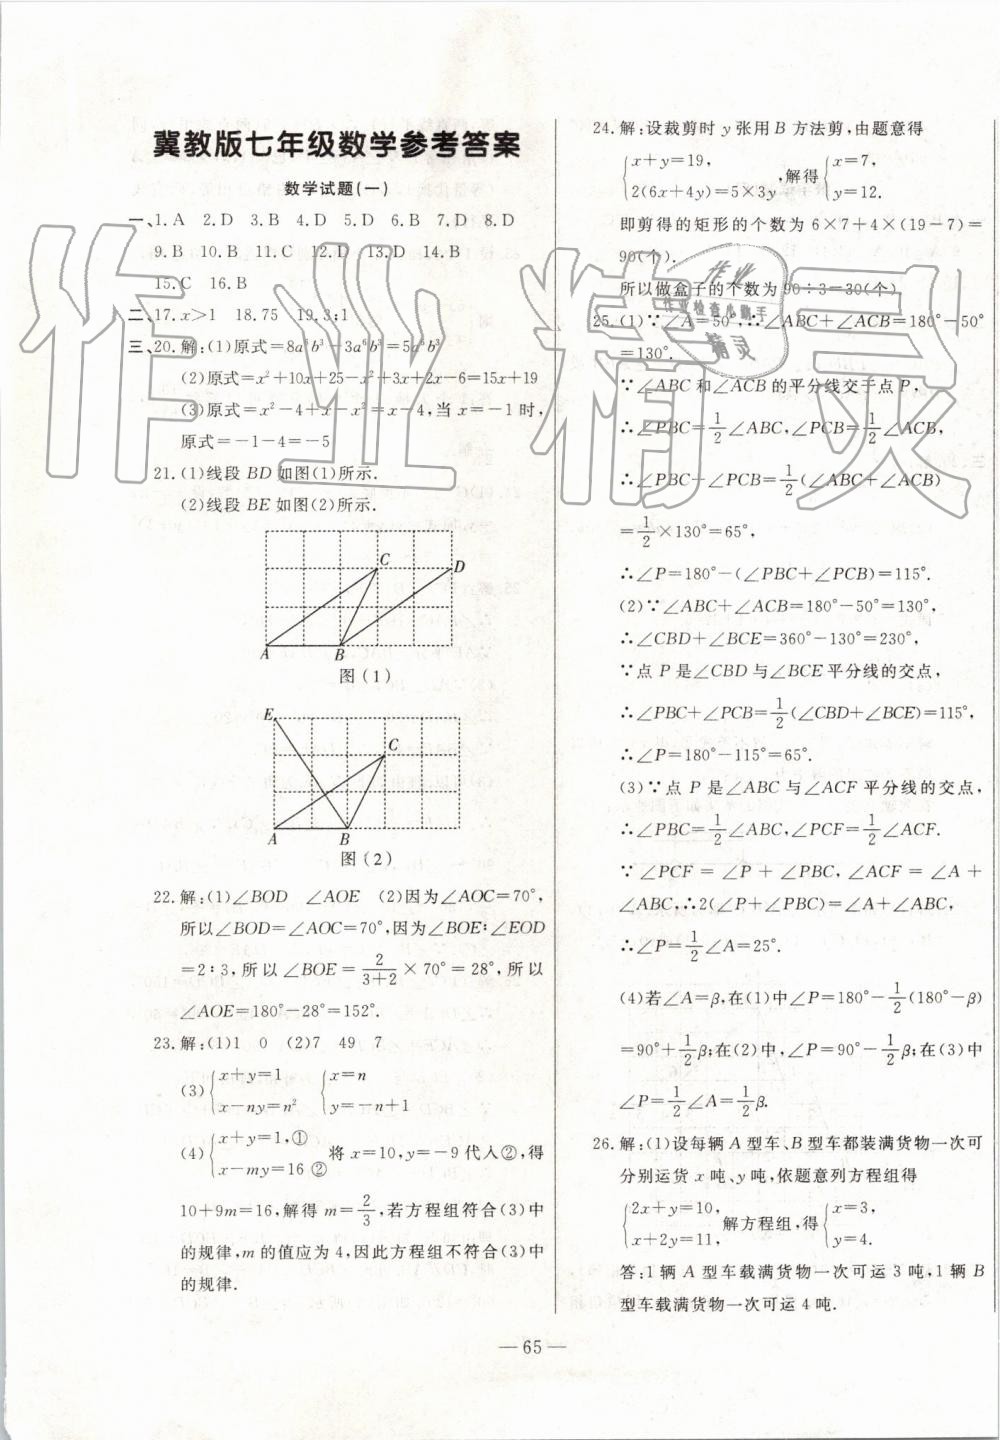 冀教版七年级数学参考答案
数学试题(一)
一、1.A 2.D 3.B 4.D 5.D 6.B 7.D 8.D
9.B 10.B 11.C 12.D 13.D 14.B
15.C 16.B
二、17.x>1 18.75 19.3:1
三、20.解:(1)原式=8a⁶b³-3a⁶b³=5a⁶b³
(2)原式=x²+10x+25-x²+3x+2x-6=15x+19
(3)原式=x²-4+x-x²=x-4,当x=-1时,
原式=-1-4=-5
21.(1)线段BD如图(1)所示.
(2)线段BE如图(2)所示.
C
D
A B
图(1)
E
C
A B
图(2)
22.解:(1)∠BOD ∠AOE (2)因为∠AOC=70°,
所以∠BOD=∠AOC=70°,因为∠BOE∶∠EOD
=2∶3,所以∠BOE=2/(3+2)×70°=28°,所以
∠AOE=180°-28°=152°.
23.解:(1)1 0 (2)7 49 7
(3){x+y=1 {x=n
x-ny=n² y=-n+1
(4){x+y=1,① 将x=10,y=-9代人②,得
x-my=16 ②
10+9m=16,解得m=2/3,若方程组符合(3)中
的规律,m的值应为4,因此方程组不符合(3)中
的规律.
24.解:设裁剪时y张用B方法剪,由题意得
{x+y=19, ,解得{x=7,
2(6x+4y)=5×3y y=12.
即剪得的矩形的个数为6×7+4×(19-7)=
90(个).
所以做盒子的个数为90÷3=30(个)
25.(1)∵∠A=50°,∴∠ABC+∠ACB=180°-50°
=130°.
∵∠ABC和∠ACB的平分线交于点P,
∴∠PBC=1/2∠ABC,∠PCB=1/2∠ACB,
∴∠PBC+∠PCB=1/2(∠ABC+∠ACB)
=1/2×130°=65°,
∴∠P=180°-(∠PBC+∠PCB)=115°.
(2)∵∠ABC+∠ACB=180°-50°=130°,
∴∠CBD+∠BCE=360°-130°=230°,
∵点P是∠CBD与∠BCE平分线的交点,
∴∠PBC+∠PCB=1/2(∠CBD+∠BCE)=115°,
∴∠P=180°-115°=65°.
(3)∵点P是∠ABC与∠ACF平分线的交点,
∴∠PBC=1/2∠ABC,∠PCF=1/2∠ACF.
∵∠PCF=∠P+∠PBC,∠ACF=∠A+
∠ABC,∴2(∠P+∠PBC)=∠A+∠ABC,
∴∠P=1/2∠A=25°.
(4)若∠A=β,在(1)中∠P=180°-1/2(180°-β)
=90°+1/2β;在(2)中,∠P=90°-1/2β;在(3)中
∠P=1/2∠A=1/2β.
26.解:(1)设每辆A型车、B型车都装满货物一次可
分别运货x吨、y吨,依题意列方程组得
{2x+y=10, 解方程组,得{x=3,
x+2y=11, y=4.
答:1辆A型车载满货物一次可运3吨,1辆B
型车载满货物一次可运4吨.
— 65 —
作业精灵
作业
作业检查小助手
精灵